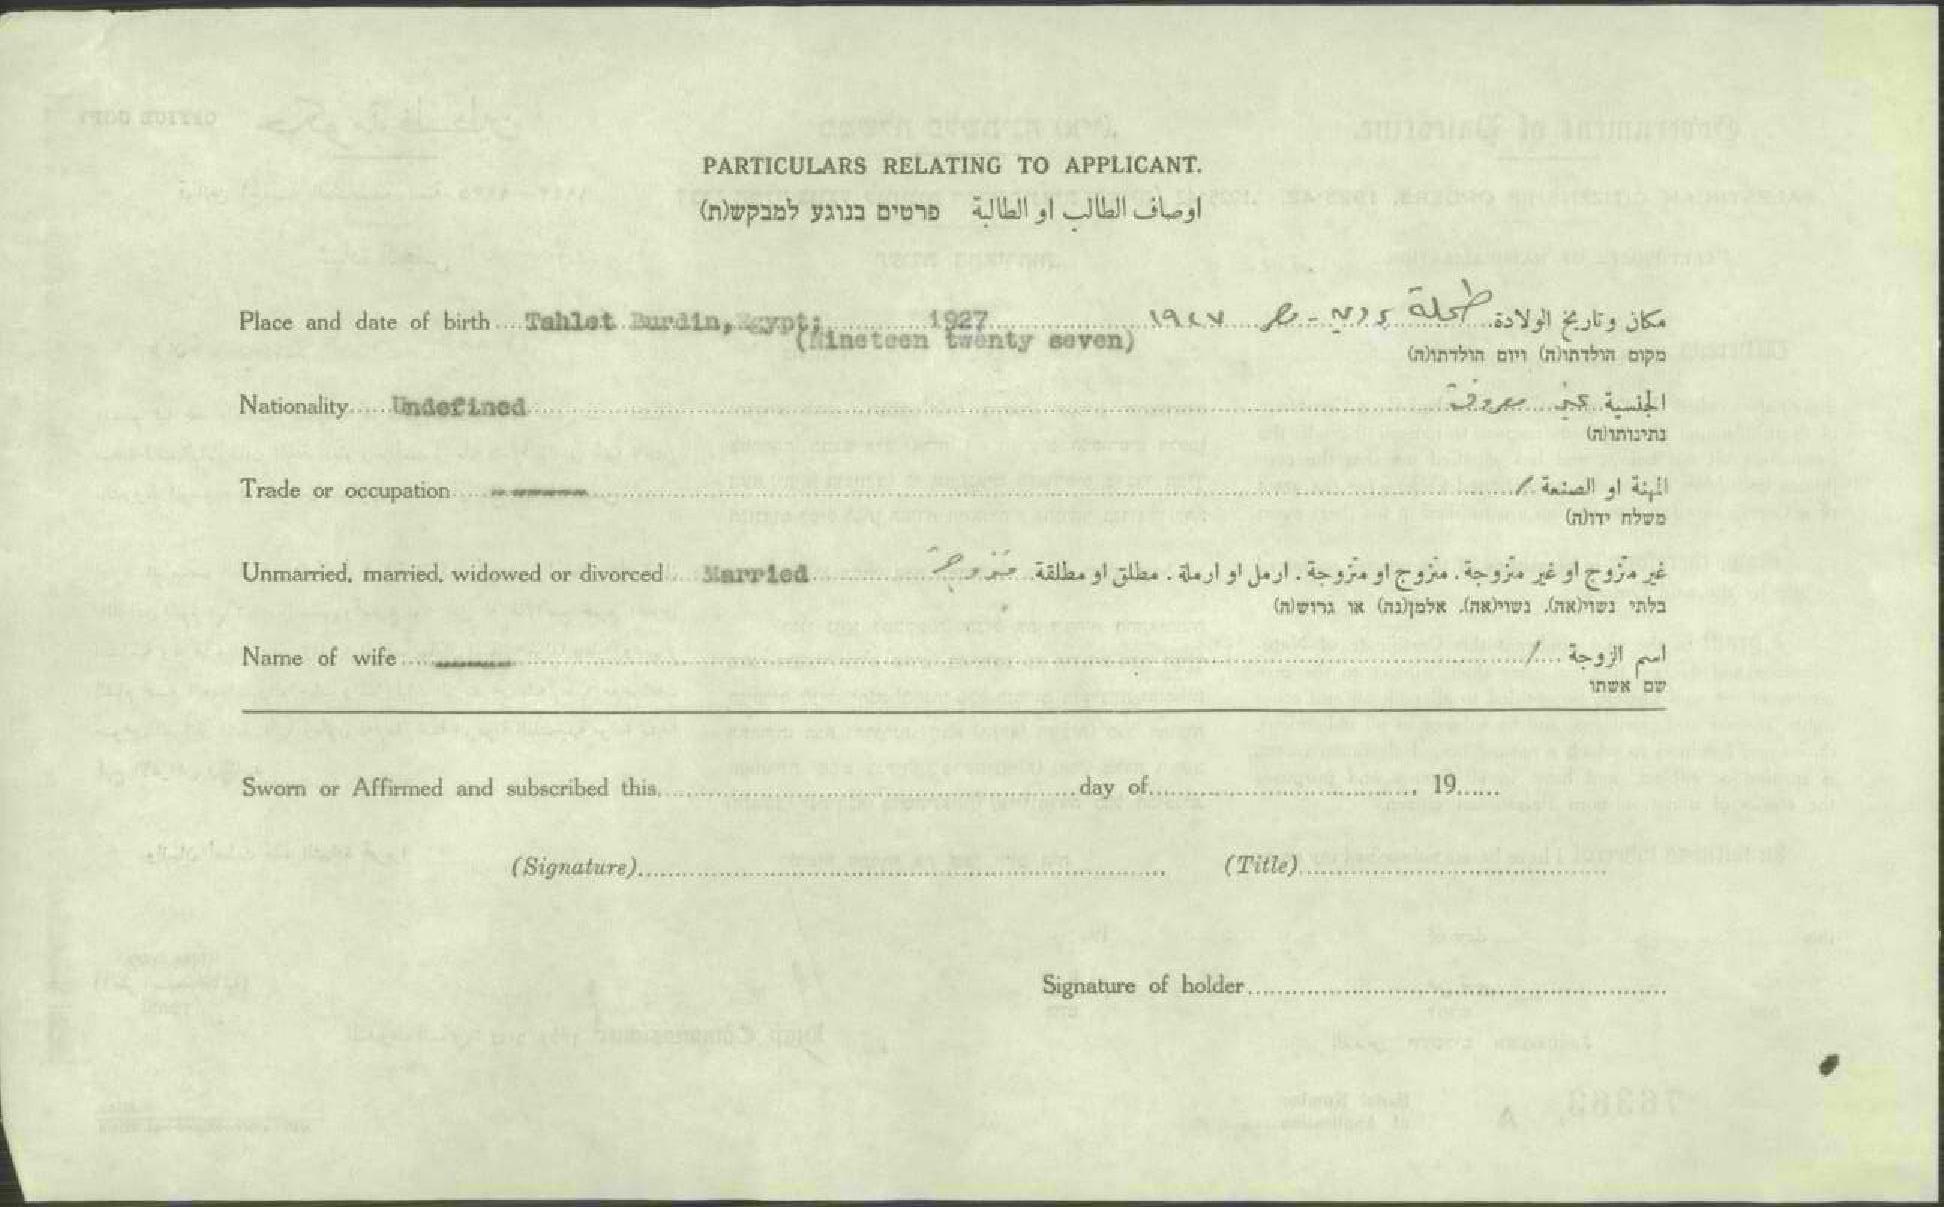 PARTICULARS RELATING TO APPLICANT.
اوصاف الطالب او الطالبة פרטים בנוגע למבקש(ת)
Place and date of birth Tahlet Burdin, Egypt; 1927 ١٩٢٧ طحلة بردين - مصر مكان وتاريخ الولادة
(Nineteen twenty seven)
מקום הולדתו(ה) ויום הולדתו(ה)
Nationality Undefined الجنسية غير معروفة
נתינותו(ה)
Trade or occupation المهنة او الصنعة /
משלח ידו(ה)
Unmarried, married, widowed or divorced Married غير متزوج او غير متزوجة . متزوج او متزوجة . ارمل او ارملة . مطلق او مطلقة متزوجة
בלתי נשוי(אה), נשוי(אה), אלמן(נה) או גרוש(ה)
Name of wife اسم الزوجة /
שם אשתו
Sworn or Affirmed and subscribed this day of 19
(Signature) (Title)
Signature of holder